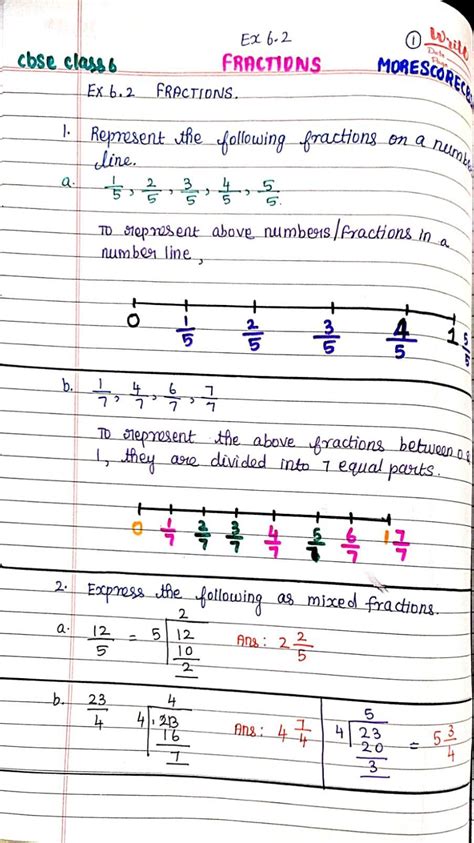 Ex 6.2
① Write
Date
Page
cbse class 6 FRACTIONS MORESCORECB
Ex 6.2 FRACTIONS.
1. Represent the following fractions on a numbe
line.
a. 1/5, 2/5, 3/5, 4/5, 5/5.
To represent above numbers/fractions in a
number line,
0 1/5 2/5 3/5 4/5 1 5/5
b. 1/7, 4/7, 6/7, 7/7
To represent the above fractions between 0 &
1, they are divided into 7 equal parts.
0 1/7 2/7 3/7 4/7 5/7 6/7 1 7/7
2. Express the following as mixed fractions.
2
a. 12/5 = 5 12 Ans: 2 2/5
10
2
b. 23/4 4 23 Ans: 4 7/4
4
16
7
5
4 23 = 5 3/4
20
3